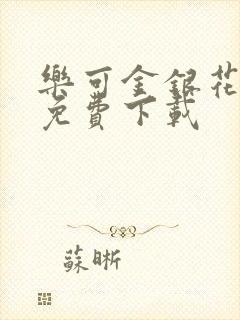 樂可金銀花
免費下載
蘇晰